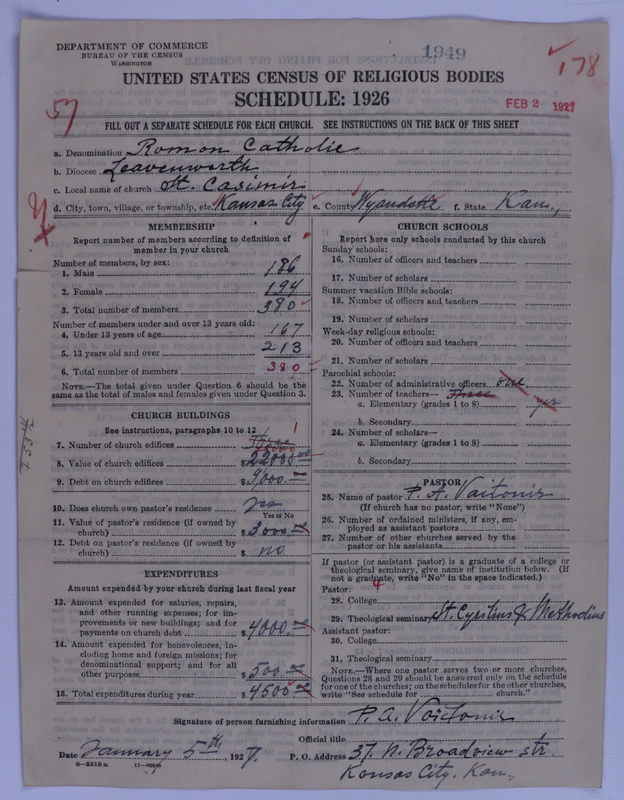 DEPARTMENT OF COMMERCE
BUREAU OF THE CENSUS
WASHINGTON
1949
178
UNITED STATES CENSUS OF RELIGIOUS BODIES
SCHEDULE: 1926
FEB 2 1927
57
FILL OUT A SEPARATE SCHEDULE FOR EACH CHURCH. SEE INSTRUCTIONS ON THE BACK OF THIS SHEET
a. Denomination Roman Catholic
b. Diocese Leavenworth
c. Local name of church St. Casimir
d. City, town, village, or township, etc. Kansas City e. County Wyandotte f. State Kan.,
MEMBERSHIP
Report number of members according to definition of
member in your church
Number of members, by sex:
1. Male 186
2. Female 194
3. Total number of members 380
Number of members under and over 13 years old:
4. Under 13 years of age 167
5. 13 years old and over 213
6. Total number of members 380
NOTE.—The total given under Question 6 should be
same as the total of males and females given under Question 3.
CHURCH BUILDINGS
See instructions, paragraphs 10 to 12
7. Number of church edifices Three 1
8. Value of church edifices $22000.00
9. Debt on church edifices $9,000.00
10. Does church own pastor's residence yes
Yes or No
11. Value of pastor's residence (if owned by
church) $3000.00
12. Debt on pastor's residence (if owned by
church) $ no
EXPENDITURES
Amount expended by your church during last fiscal year
13. Amount expended for salaries, repairs,
and other running expenses; for im-
provements or new buildings; and for
payments on church debt $4000.00
14. Amount expended for benevolences, in-
cluding home and foreign missions; for
denominational support; and for all
other purposes $500.00
15. Total expenditures during year $4500.00
CHURCH SCHOOLS
Report here only schools conducted by this church
Sunday schools:
16. Number of officers and teachers
17. Number of scholars
Summer vacation Bible schools:
18. Number of officers and teachers
19. Number of scholars
Week-day religious schools:
20. Number of officers and teachers
21. Number of scholars
Parochial schools:
22. Number of administrative officers one
23. Number of teachers— Three
a. Elementary (grades 1 to 8) yes
b. Secondary
24. Number of scholars—
a. Elementary (grades 1 to 8)
b. Secondary
PASTOR
25. Name of pastor P. A. Vaitonis
(If church has no pastor, write "None")
26. Number of ordained ministers, if any, em-
ployed as assistant pastors
27. Number of other churches served by the
pastor or his assistants
If pastor (or assistant pastor) is a graduate of a college or
theological seminary, give name of institution below. (If
not a graduate, write "No" in the space indicated.)
Pastor:
28. College
29. Theological seminary St. Cyrillus & Methodius
Assistant pastor:
30. College
31. Theological seminary
NOTE.—Where one pastor serves two or more churches,
Questions 28 and 29 should be answered only on the schedule
for one of the churches; on the schedules for the other churches,
write "See schedule for church."
Signature of person furnishing information P. A. Vaitonis
Official title
Date January 5th, 1927. P. O. Address 37. N. Broadview str.
8—5518 a
Kansas City. Kan.,